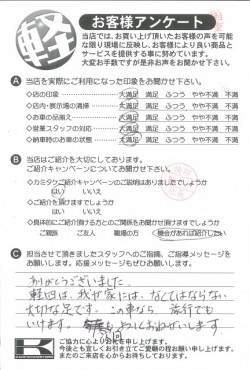 軽
お客様アンケート
当店では、お買い上げ頂いたお客様の声を可能
な限り現場に反映し、お客様により良い商品と
サービスを提供する事に努めています。
大変お手数ですが是非お声をお聞かせ下さい。
A 当店を実際にご利用になった印象をお聞かせ下さい。
◇店の印象 大満足 満足 ふつう やや不満 不満
◇店内・展示場の清掃 大満足 満足 ふつう やや不満 不満
◇お車の品揃え 大満足 満足 ふつう やや不満 不満
◇営業スタッフの対応 大満足 満足 ふつう やや不満 不満
◇納車時のお車の状態 大満足 満足 ふつう やや不満 不満
B 当店はご紹介を大切にしております。
ご紹介キャンペーンについてお聞かせ下さい。
◇カミタケご紹介キャンペーンのご説明はありましたでしょうか
はい いいえ
◇ご紹介を頂けますでしょうか
はい いいえ
◇具体的にご紹介頂ける方とのご関係をお聞かせ頂けますでしょうか
ご親族 ご友人 職場の方 機会があれば紹介したい
C 担当させて頂きましたスタッフへのご指摘、ご指導メッセージを
お願いします。応援メッセージもぜひお願いします。
ありがとうございました。
軽四は、我が家には、なくてはならない
大切な足です。この車なら、旅行でも
いけます。 よろしくおねがいします。
K
ご協力に心よりお礼を申し上げます。
今後とも宜しくお引き立てご愛顧の程お願い申し上げます。
またのご来店を心からお待ちしております。